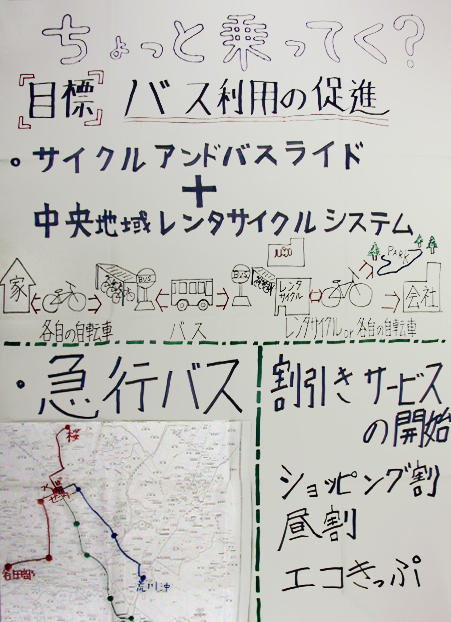 ちょっと乗ってく?
[目標] バス利用の促進
・サイクルアンドバスライド
+
中央地域レンタサイクルシステム
家
BUS
BUS
レンタ
サイクル
PARK
会社
各自の自転車
バス
レンタサイクル or 各自の自転車
・急行バス
桜
割引きサービス
の開始
ショッピング割
昼割
エコきっぷ